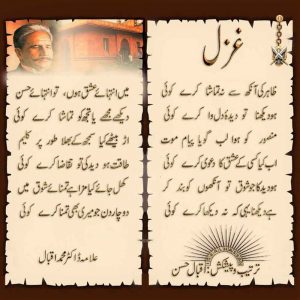 غزل
ظاہر کی آنکھ سے نہ تماشا کرے کوئی
ہو دیکھنا تو دیدۂ دل وا کرے کوئی
منصور کو ہوا لب گویا پیام موت
اب کیا کسی کے عشق کا دعویٰ کرے کوئی
ہو دید کا جو شوق تو آنکھوں کو بند کر
ہے دیکھنا یہی کہ نہ دیکھا کرے کوئی
ترتیب و پیشکش: اقبال حسن
میں انتہائے عشق ہوں، تو انتہائے حسن
دیکھے مجھے کہ تجھ کو تماشا کرے کوئی
اڑ بیٹھے کیا سمجھ کے بھلا طور پر کلیم
طاقت ہو دید کی تو تقاضا کرے کوئی
کھل جائے کیا مزے ہیں تمنائے شوق میں
دو چار دن جو میری بھی تمنا کرے کوئی
علامہ ڈاکٹر محمد اقبال